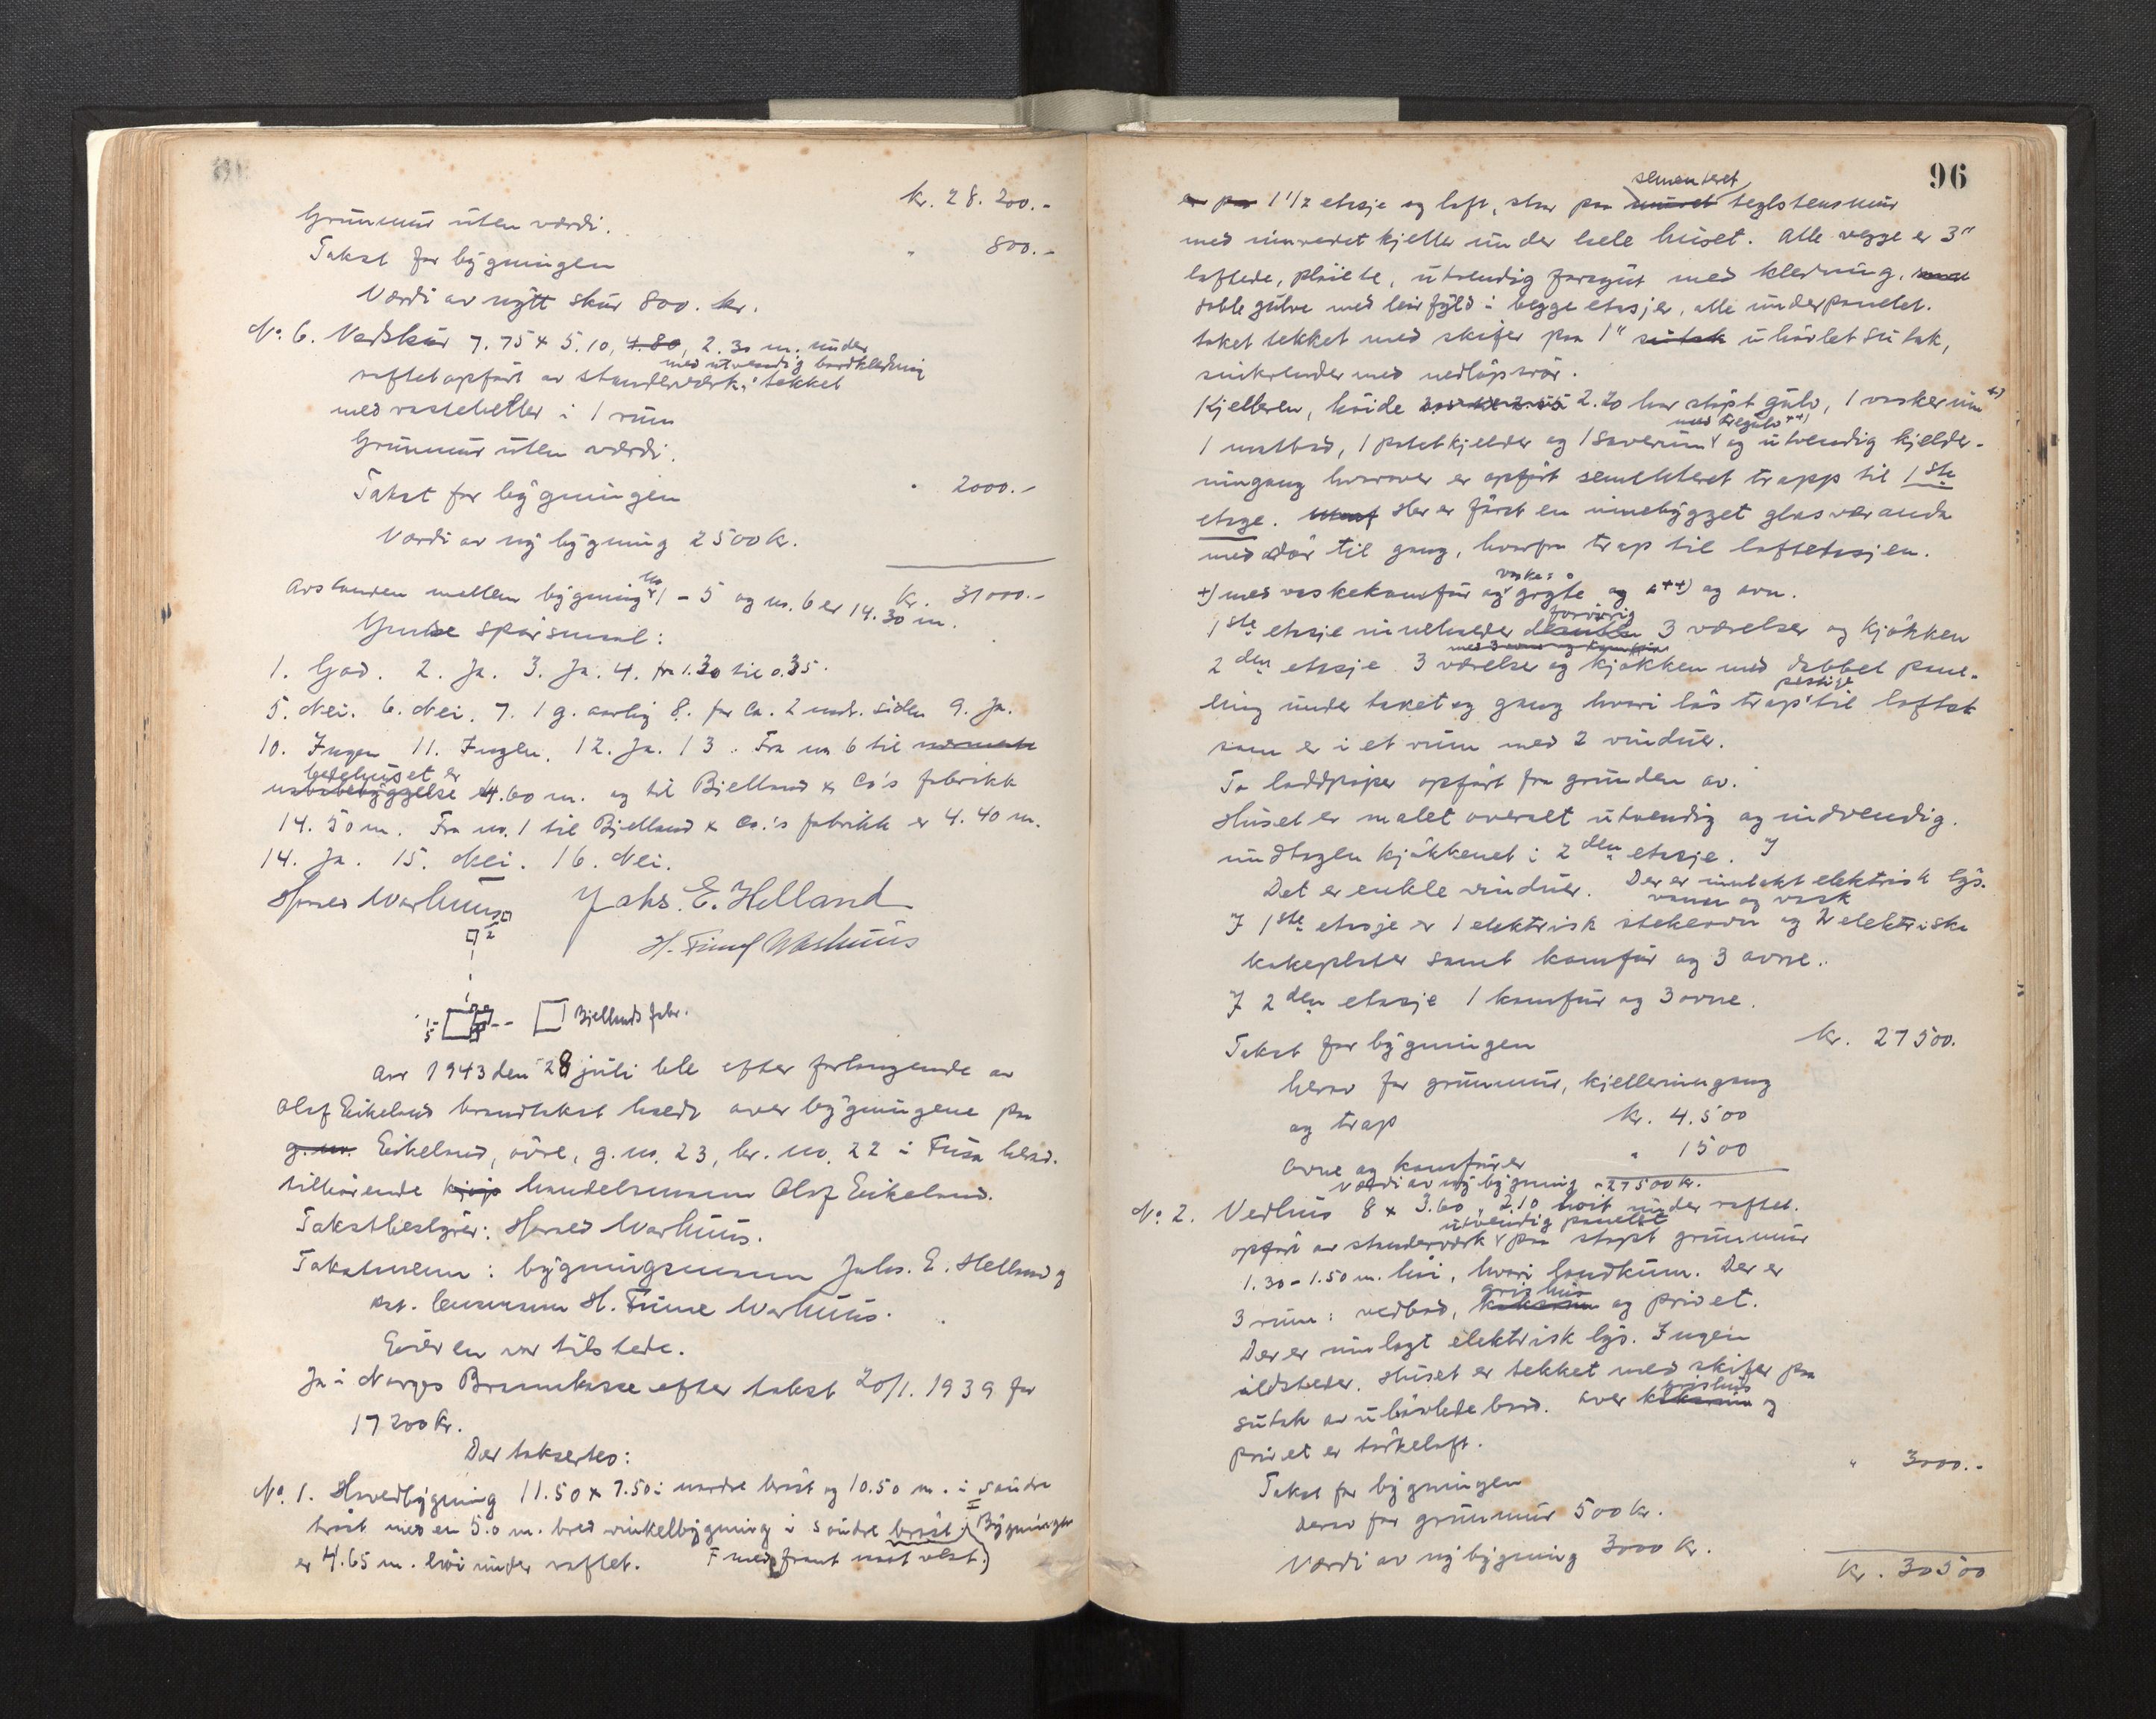 kr. 28.200.-
Grunnmur uten værdi.
Takst for bygningen " 800.-
Værdi av nytt skur 800. kr.
No. 6. Vedskur 7.75 x 5.10, 4.80, 2.30 m. under
med utvendig bordkledning
raftet opført av standerverk, tekket
med rasteheller i 1 rum
Grunnmur uten værdi.
Takst for bygningen " 2000.-
Værdi av ny bygning 2500 kr.
Kr. 31000.-
Avstanden mellem bygning no 1 - 5 og no. 6 er 14.30 m.
spørsmaal:
1. God. 2. Ja. 3. Ja. 4. fra 1.30 til 0.35.
5. Nei. 6. Nei. 7. 1 g. aarlig 8. for ca. 2 mdr. siden 9. Ja.
10. Ingen 11. Ingen. 12. Ja. 13. Fra no 6 til nærmeste
bedehuset er
nabobebyggelse 4.60 m. og til Bjelland & Co's fabrikk
14.50 m. Fra no. 1 til Bjelland & Co.'s fabrikk er 4.40 m.
14. Ja. 15. Nei. 16. Nei.
Warhuus Johs. E. Helland
H. Finne Warhuus
2
1-
5
Bjellands fabr.
Aar 1943 den 28 juli ble efter forlangende av
Olaf Eikeland brandtakst holdt over bygningene paa
g. no. Eikeland, øvre, g. no. 23, br. no. 22 i Fusa herad.
tilhørende handelsmann Olaf Eikeland.
Takstbestyrer: Warhuus.
Takstmenn: bygningsmann Johs. E. Helland og
lensmann H. Finne Warhuus.
Eieren var tilstede.
Ja i Norges Brannkasse efter takst 20/1. 1939 for
17200 kr.
Der taksertes:
No. 1. Hovedbygning 11.50 x 7.50 i nordre brøst og 10.50 m. i søndre
brøst med en 5.0 m. bred vinkelbygning i søndre brøst. Bygningen
er 4.65 m. høi under raftet. F med front mot vest.)
96
sementeret
er paa 1 1/2 etasje og loft, staar paa muret teglstensmur
med innredet kjeller under hele huset. Alle vegge er 3"
laftede, pløiete, utvendig forsynt med kledning,
doble gulve med leirfyld i begge etasjer, alle underpanelet.
taket tekket med skifer paa 1" sutak uhøvlet sutak,
sinkrender med nedløpsrør.
Kjelleren, høide 2.20 har støpt gulv, 1 vaskerum +)
med tregulv ++)
1 matbod, 1 potetkjelder og 1 soverum og utvendig kjelder-
inngang hvorover er opført sementeret trapp til 1ste
etage. Her er først en innebygget glasveranda
med dør til gang, hvorfra trap til loftetasjen.
vaske:
+) med vaskekomfur og gryte og ++) og ovn.
forøvrig
1ste etasje inneholder 3 værelser og kjøkken
med 3 ovner og komfur
2den etasje 3 værelser og kjøkken med dobbel pane-
ling under taket og gang hvori løs trap til loftet
som er i et rum med 2 vinduer.
To loddpiper opført fra grunden av.
Huset er malet overalt utvendig og indvendig.
undtagen kjøkkenet i 2den etasje. I
Det er enkle vinduer. Der er innlakt elektrisk lys.
vann og vask
I 1ste etasje er 1 elektrisk stekeovn og 2 elektriske
kokeplater samt komfur og 3 ovne.
I 2den etasje 1 komfur og 3 ovne.
Takst for bygningen kr. 27500.
herav for grunnmur, kjellerinngang
og trap kr. 4.500
Ovne og komfurer " 1500
Værdi av ny bygning - 27500 kr.
No. 2. Vedhus 8 x 3.60, 2.10 høit under raftet.
utvendig panelet
opført av standerverk paa støpt grunnmur
1.30 - 1.50 m. høi, hvori landkum. Der er
grishus
3 rum: vedbod, og privet.
Der er innlagt elektrisk lys. Ingen
ildsteder. Huset er tekket med skifer paa
grishus
sutak av uhøvlede bord. Over og
privet er tørkeloft.
Takst for bygningen " 3000.-
derav for grunnmur 500 kr.
Værdi av ny bygning 3000 kr.
Kr. 30500